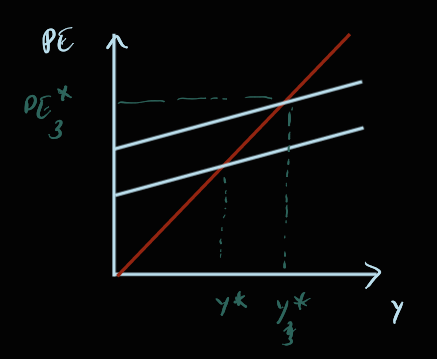 PE
PE*3
y* y*3
y